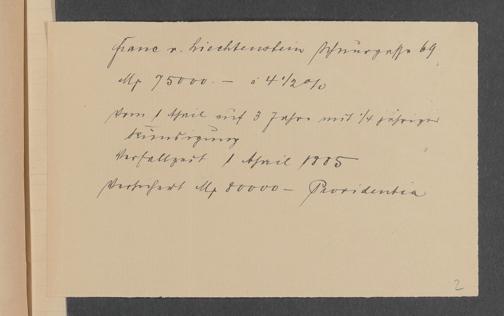 Franc v. Liechtenstein Schnurgasse 69
Mk 75000.— à 4 1/2 %
vom 1 April auf 3 Jahre mit 1/4 jähriger
Kündigung
Verfallzeit 1 April 1885
Versichert Mk 80000— Providentia
2